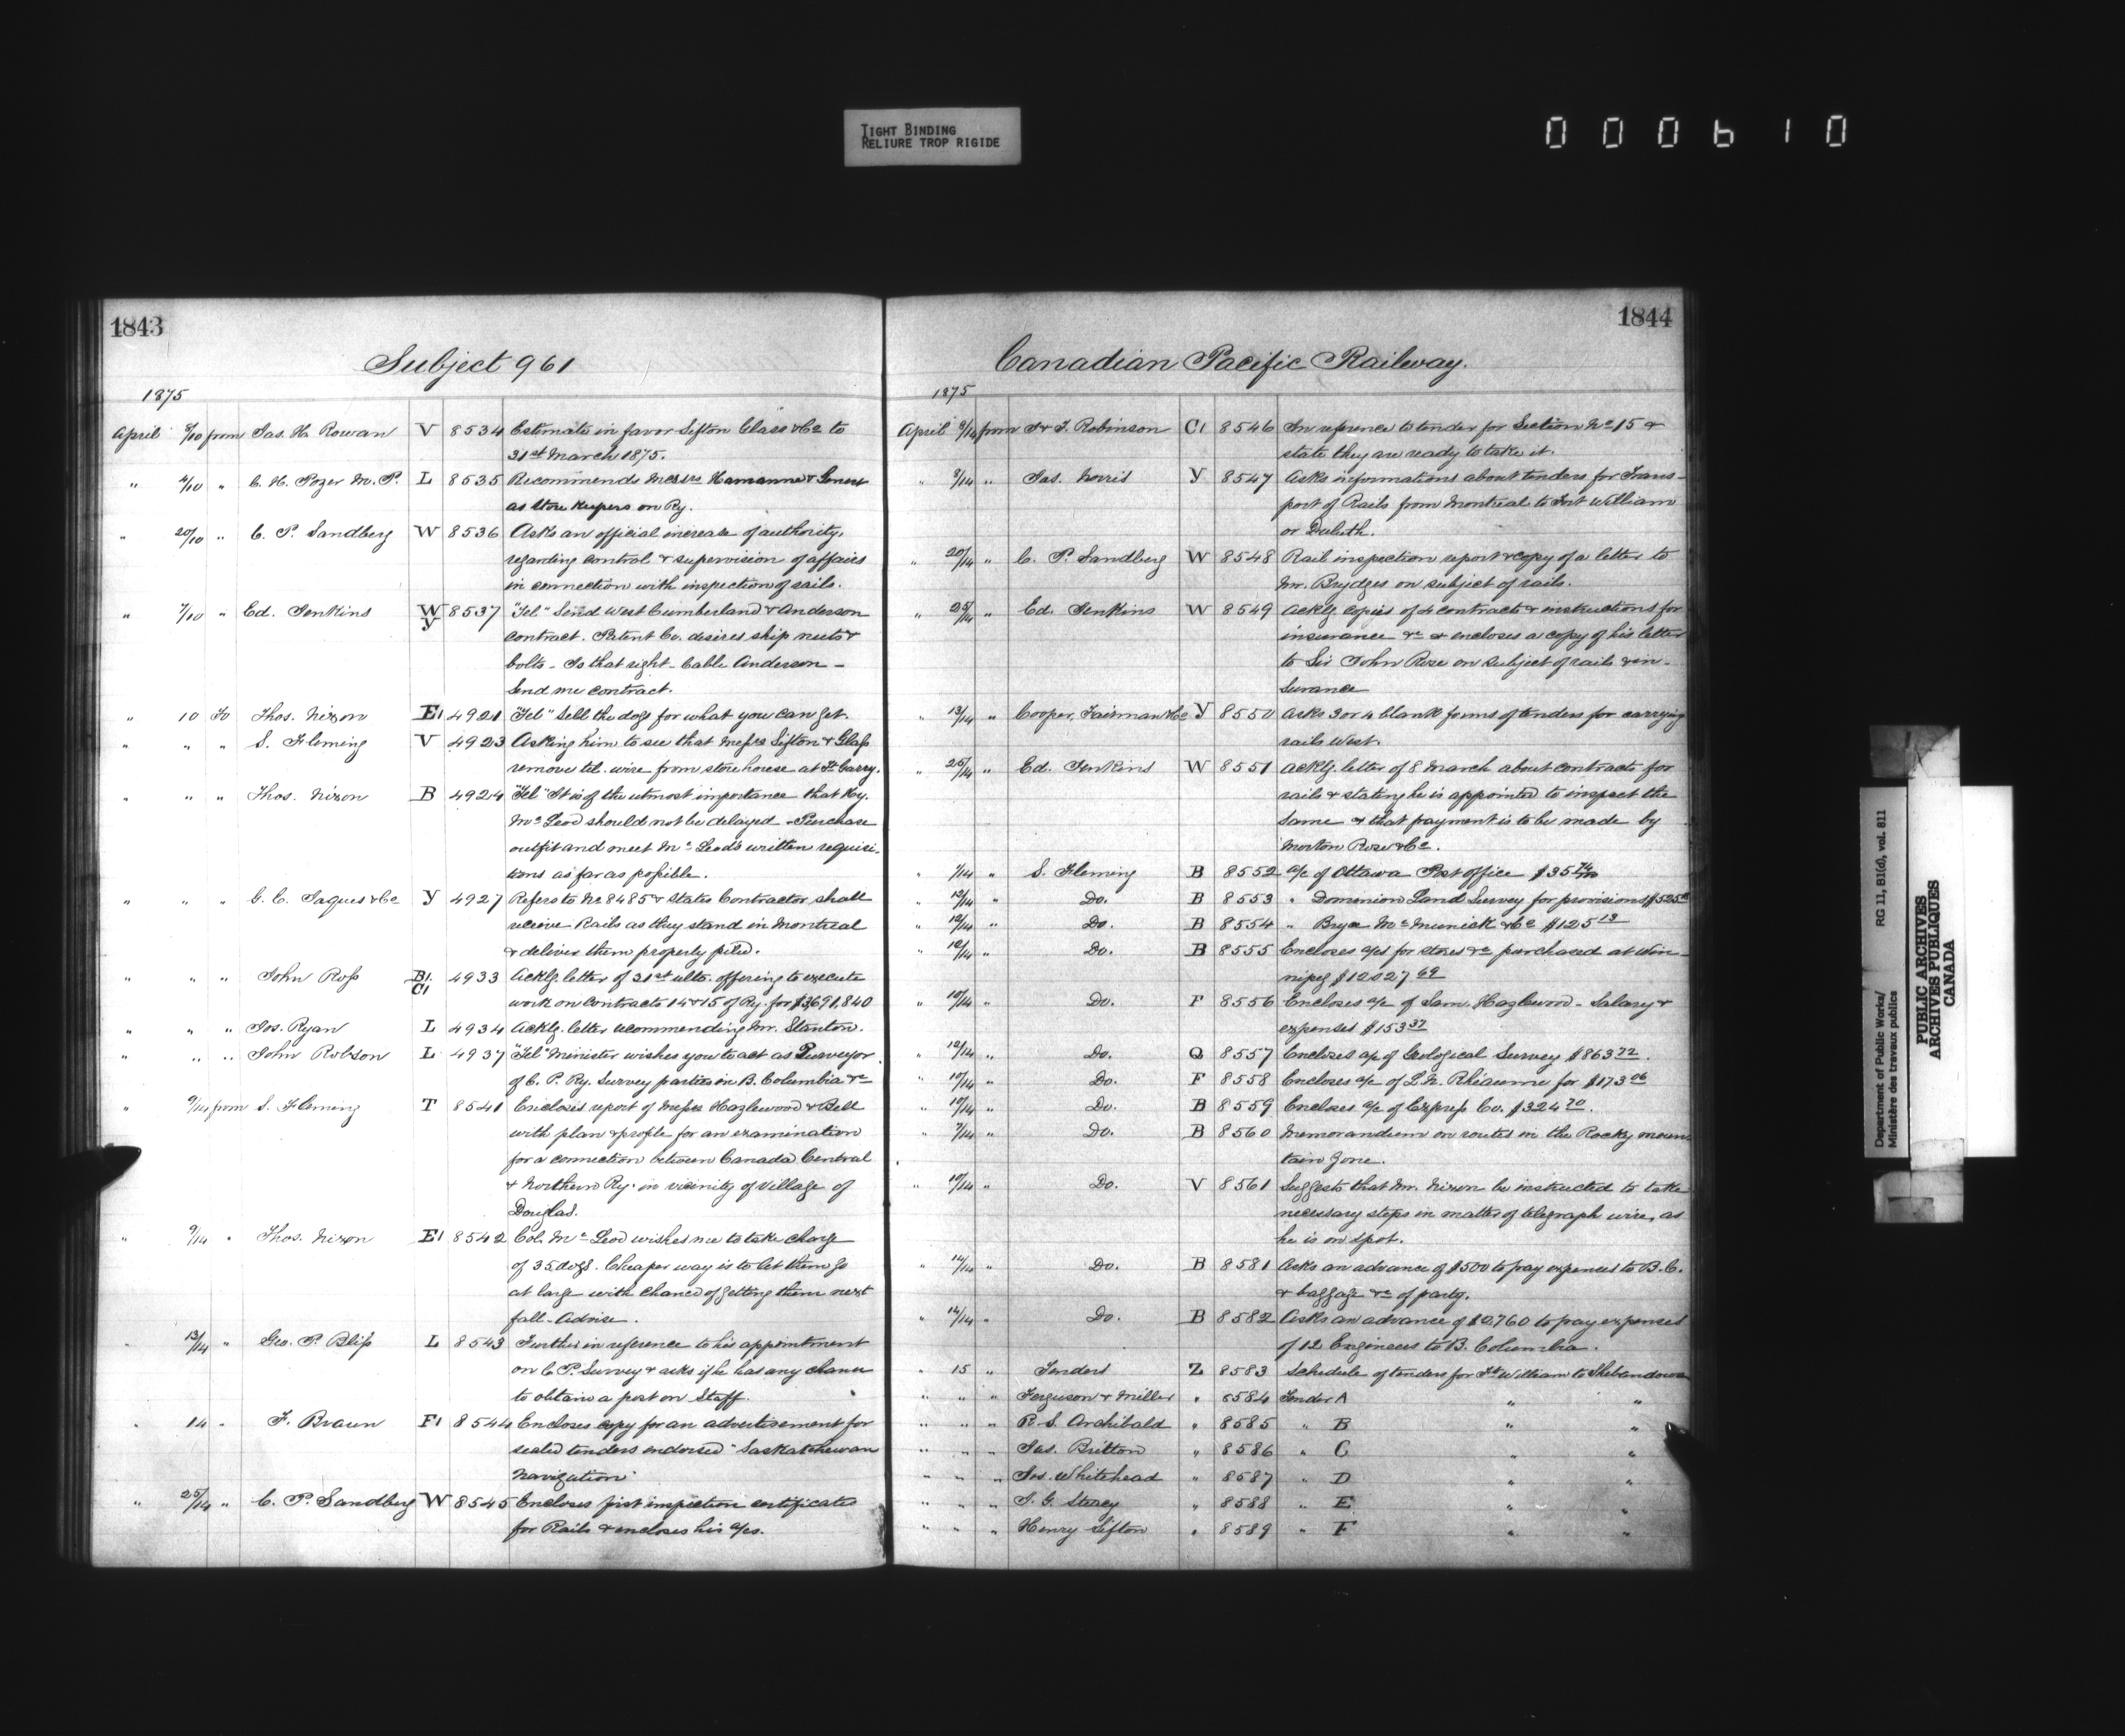 TIGHT BINDING
RELIURE TROP RIGIDE
000610
1843
Subject 961
1875
April 8/10 from Jas. H. Rowan V 8534 Estimate in favor Sifton Glass & Co to
31st March 1875.
" 9/10 " C. H. Pozer M. P. L 8535 Recommends Messrs Hamanne &
as Store Keepers on Ry.
" 20/10 " C. P. Sandberg W 8536 Asks an official increase of authority,
regarding control & supervision of affairs
in connection with inspection of rails.
" 7/10 " Ed. Jenkins W Y 8537 "Tel" Send West Cumberland & Anderson
contract. Patent Co. desires ship nuts &
bolts - Is that right - Cable Anderson -
Send me contract.
" 10 To Thos. Nixon E1 4921 "Tel" Sell the dogs for what you can get.
" " " S. Fleming V 4923 Asking him to see that Messrs Sifton & Glass
remove tel. wire from storehouse at Ft Garry.
" " " Thos. Nixon B 4924 "Tel" It is of the utmost importance that Hy.
McLeod should not be delayed - Purchase
outfit and meet McLeod's written requisi-
tions as far as possible.
" " " G. E. Jaques & Co Y 4927 Refers to No 8485 & states Contractor shall
receive Rails as they stand in Montreal
& deliver them properly piled.
" " " John Ross B1 C1 4933 Ackg. letter of 31st ulto. offering to execute
work on contracts 14 & 15 of Ry. for $3,691,840
" " " Jos. Ryan L 4934 Ackg. letter recommending Mr. Stanton.
" " " John Robson L 4937 "Tel" Minister wishes you to act as Purveyor
of C. P. Ry. Survey parties in B. Columbia &c
" 9/14 from S. Fleming T 8541 Encloses report of Messrs Hazlewood & Bell
with plan & profile for an examination
for a connection between Canada Central
& Northern Ry. in vicinity of Village of
Douglas.
" 9/14 " Thos. Nixon E1 8542 Col. McLeod wishes me to take charge
of 35 dogs. Cheaper way is to let them go
at large with chance of getting them next
fall - Advise.
" 13/14 " Geo. P. Bliss L 8543 Further in reference to his appointment
on C. P. Survey & asks if he has any chance
to obtain a post on Staff.
" 14 " F. Braun F1 8544 Encloses copy for an advertisement for
sealed tenders endorsed "Saskatchewan
Navigation"
" 25/14 " C. P. Sandberg W 8545 Encloses first inspection certificates
for Rails & encloses his a/cs.
1844
Canadian Pacific Railway.
1875
April 9/14 from J & J. Robinson C1 8546 In reference to tender for Section No 15 &
state they are ready to take it.
" 8/14 " Jas. Norris Y 8547 Asks informations about tenders for Trans-
port of Rails from Montreal to Fort William
or Duluth.
" 20/14 " C. P. Sandberg W 8548 Rail inspection report & copy of a letter to
Mr. Brydges on subject of rails.
" 25/14 " Ed. Jenkins W 8549 Ackg. copies of 4 contracts & instructions for
insurance &c & encloses a copy of his letter
to Sir John Rose on subject of rails & in-
surance
" 13/14 " Cooper, Fairman & Co Y 8550 Asks 3 or 4 blank forms of tenders for carrying
rails West.
" 25/14 " Ed. Jenkins W 8551 Ackg. letter of 8 March about contracts for
rails & stating he is appointed to inspect the
same & that payment is to be made by
Morton Rose & Co.
" 1/14 " S. Fleming B 8552 a/c of Ottawa Post office $35 74/100
" 12/14 " Do. B 8553 " Dominion Land Survey for provisions
" 12/14 " Do. B 8554 " Bryce McMunick & Co $125 13
" 12/14 " Do. B 8555 Encloses a/cs for stores &c purchased at Win-
nipeg $12027 69
" 10/14 " Do. F 8556 Encloses a/c of Sam. Hazlewood - Salary &
expenses $153 37
" 12/14 " Do. Q 8557 Encloses a/c of Geological Survey $863 72.
" 10/14 " Do. F 8558 Encloses a/c of L. N. Rhéaume for $173 06
" 10/14 " Do. B 8559 Encloses a/c of Express Co. $324 70.
" 7/14 " Do. B 8560 Memorandum on routes in the Rocky moun-
tain Zone.
" 10/14 " Do. V 8561 Suggests that Mr. Nixon be instructed to take
necessary steps in matter of telegraph wire, as
he is on spot.
" 14/14 " Do. B 8581 Asks an advance of $500 to pay expenses to B. C.
& baggage &c of party.
" 14/14 " Do. B 8582 Asks an advance of $2,760 to pay expenses
of 12 Engineers to B. Columbia.
" 15 " Tenders Z 8583 Schedule of tenders for Ft William to Shebandowan
" " " Ferguson & Miller " 8584 Tender A " "
" " " R. S. Archibald " 8585 " B " "
" " " Jas. Britton " 8586 " C " "
" " " Jos. Whitehead " 8587 " D " "
" " " J. G. Stacey " 8588 " E " "
" " " Henry Sifton " 8589 " F " "
Department of Public Works/
Ministère des travaux publics
RG 11, B1(d), vol. 811
PUBLIC ARCHIVES
ARCHIVES PUBLIQUES
CANADA